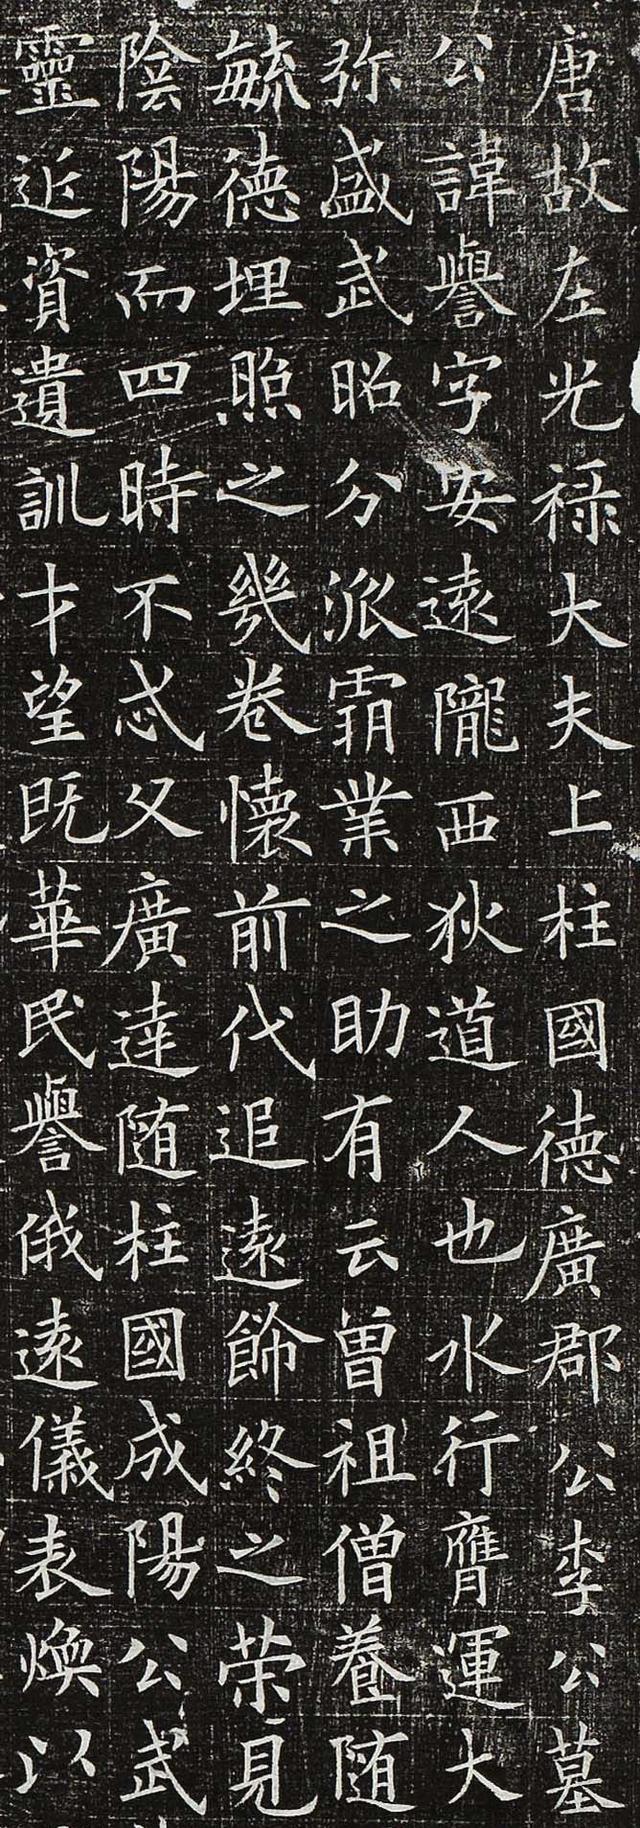 唐故左光禄大夫上柱國德廣郡公李公墓
公諱譽字安遠隴西狄道人也水行膺運大
弥盛武昭分派霸業之助有云曽祖僧養随
毓德埋照之幾卷懷前代追遠飾終之荣見
陰陽而四時不忒父廣達随柱國成陽公武
靈近資遺訓才望既華民譽俄遠儀表煥以